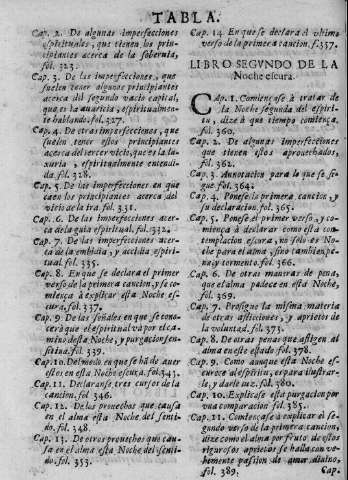 TABLA.
Cap. 2. De algunas imperfecciones
espirituales, que tienen los prin-
cipiantes acerca de la soberuia,
fol. 323.
Cap. 3. De las imperfecciones, que
suelen tener algunos principiantes
acerca del segundo vacio capital,
que es la auaricia, espiritualmen-
te hablando. fol. 327.
Cap. 4. De otras imperfecciones, que
suelen tener estos principiantes
acerca del tercer vicio, que es la lu-
xuria, espiritualmente entendi-
da. fol. 328.
Cap. 5. De las imperfecciones en que
caen los principiantes acerca del
vicio de la ira. fol. 331.
Cap. 6. De las imperfecciones acer-
ca de la gula espiritual. fol. 332.
Cap. 7. De las imperfecciones acer-
ca de la embidia, y accidia espiri-
tual. fol. 335.
Cap. 8. En que se declara el primer
verso de la primera cancion, y se co-
miença à explicar esta Noche es-
cura. fol. 337.
Cap. 9. De las señales en que se cono-
cerà que el espiritual va por el ca-
mino desta Noche, y purgacion sen-
sitiua. fol. 339.
Cap. 10. Del modo en que se hã de auer
estos en esta Noche escura. fol. 343.
Cap. 11. Declaranse tres cursos de la
cancion. fol. 346.
Cap. 12. De los prouechos que causa
en el alma esta Noche del sentido.
fol. 348.
Cap. 13. De otros prouechos que cau-
sa en el alma esta Noche del senti-
do. fol. 353.
Cap. 14. En que se declara el vltimo
verso de la primera cancion. f. 357.
LIBRO SEGVNDO DE LA
Noche escura.
Cap. 1. Comiençase à tratar de
la Noche segunda del espiri-
tu, dize à que tiempo comiença.
fol. 360.
Cap. 2. De algunas imperfecciones
que tienen estos aprouechados,
fol. 362.
Cap. 3. Annotacion para lo que se si-
gue. fol. 364.
Cap. 4. Ponese la primera cancion, y
su declaracion. fol. 365.
Cap. 5. Ponese el primer verso, y co-
miença à declarar como esta con-
templacion escura, no solo es No-
che para el alma, sino tambien pe-
na, y tormento. fol. 366.
Cap. 6. De otras maneras de pena,
que el alma padece en esta Noche.
fol. 369.
Cap. 7. Prosigue la misma materia
de otras aflicciones, y aprietos de
la voluntad. fol. 373.
Cap. 8. De otras penas que afligen al
alma en este estado. fol. 378.
Cap. 9. Como aunque esta Noche es-
curece al espiritu, es para ilustrar-
le, y darle luz. fol. 380.
Cap. 10. Explicase esta purgacion por
vna comparacion. fol. 385.
Cap. 11. Comiençase à explicar el se-
gundo verso de la primera cancion,
dize como el alma por fruto de estos
rigurosos aprietos se halla con ve-
hemente passion de amor diuino,
fol. 389.
Cap.